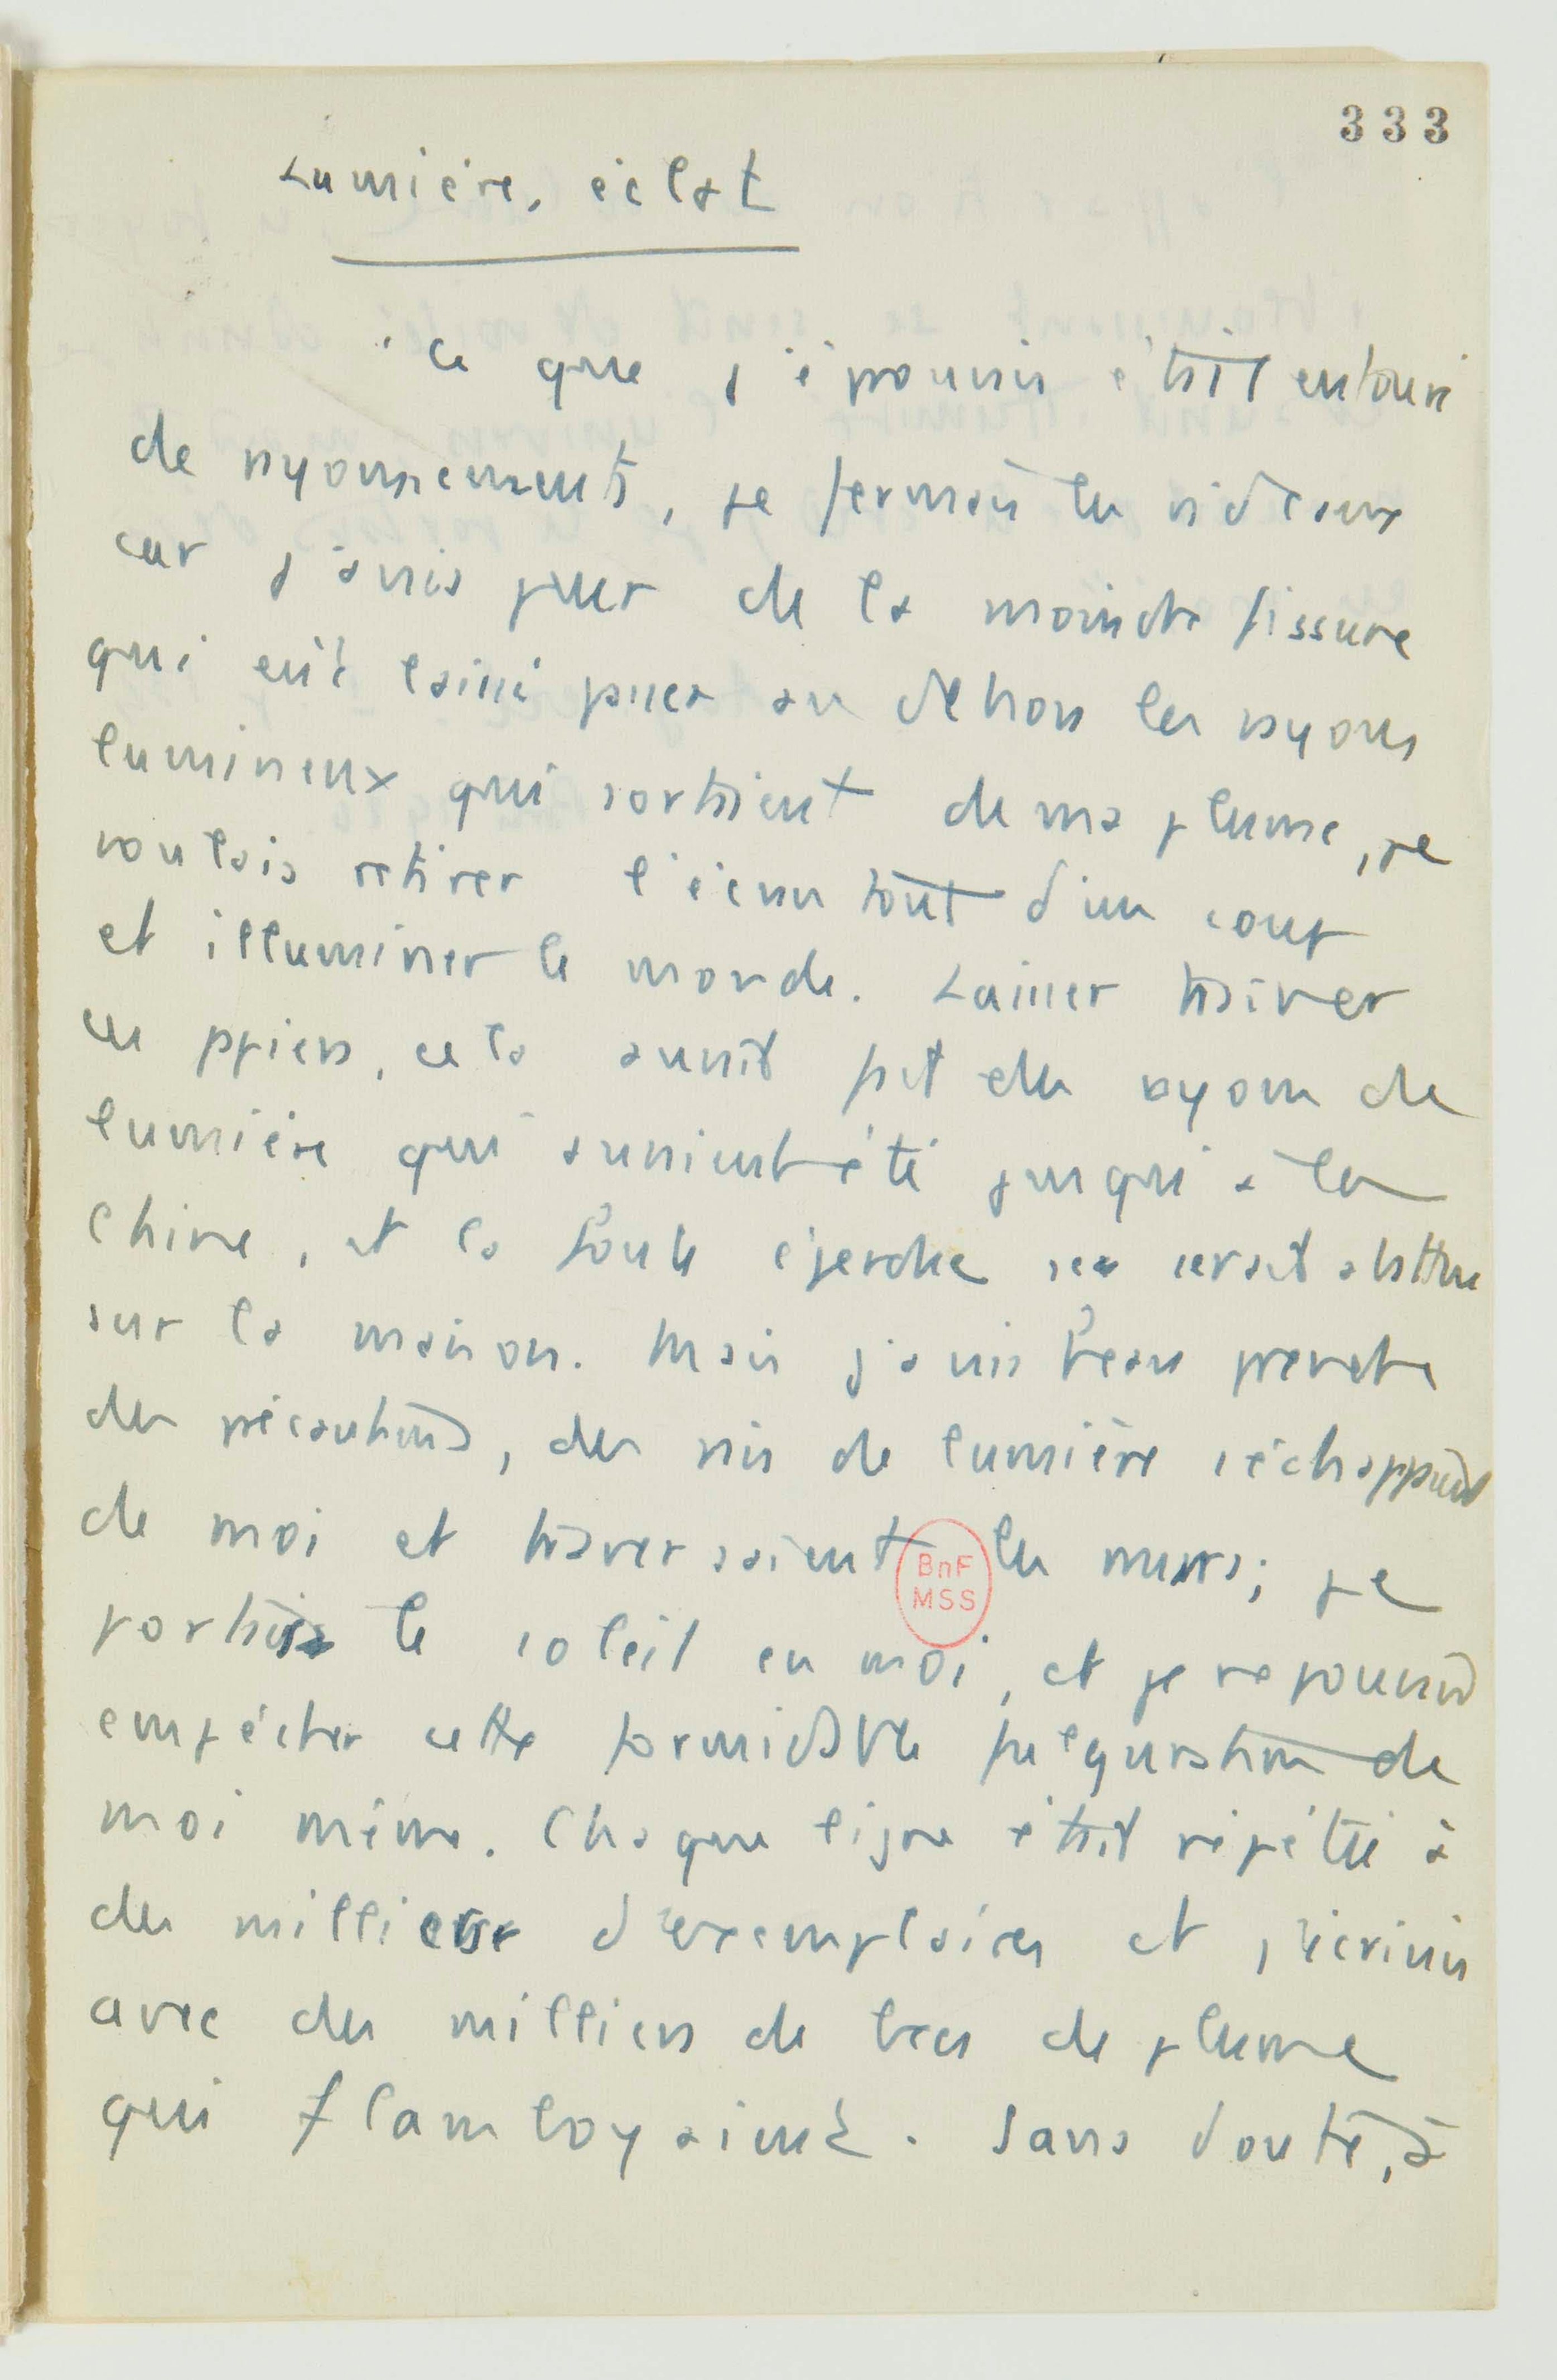 333
Lumière, éclat
Ce que j'écrivais était entouré
de rayonnements, je fermais les rideaux
car j'avais peur de la moindre fissure
qui eût laissé passer au dehors les rayons
lumineux qui sortaient de ma plume, je
voulais retirer l'écran tout d'un coup
et illuminer le monde. Laisser traîner
ces papiers, cela aurait fait des rayons de
lumière qui auraient été jusqu'à la
Chine, et la foule éperdue se serait abattue
sur la maison. Mais j'avais beau prendre
des précautions, des rais de lumière s'échappaient
de moi et traversaient les murs; je
portais le soleil en moi, et je ne pouvais
empêcher cette formidable fulguration de
moi même. Chaque ligne était répétée à
des milliers d'exemplaires et j'écrivais
avec des milliers de becs de plume
qui flamboyaient. Sans doute, à
BnF
MSS